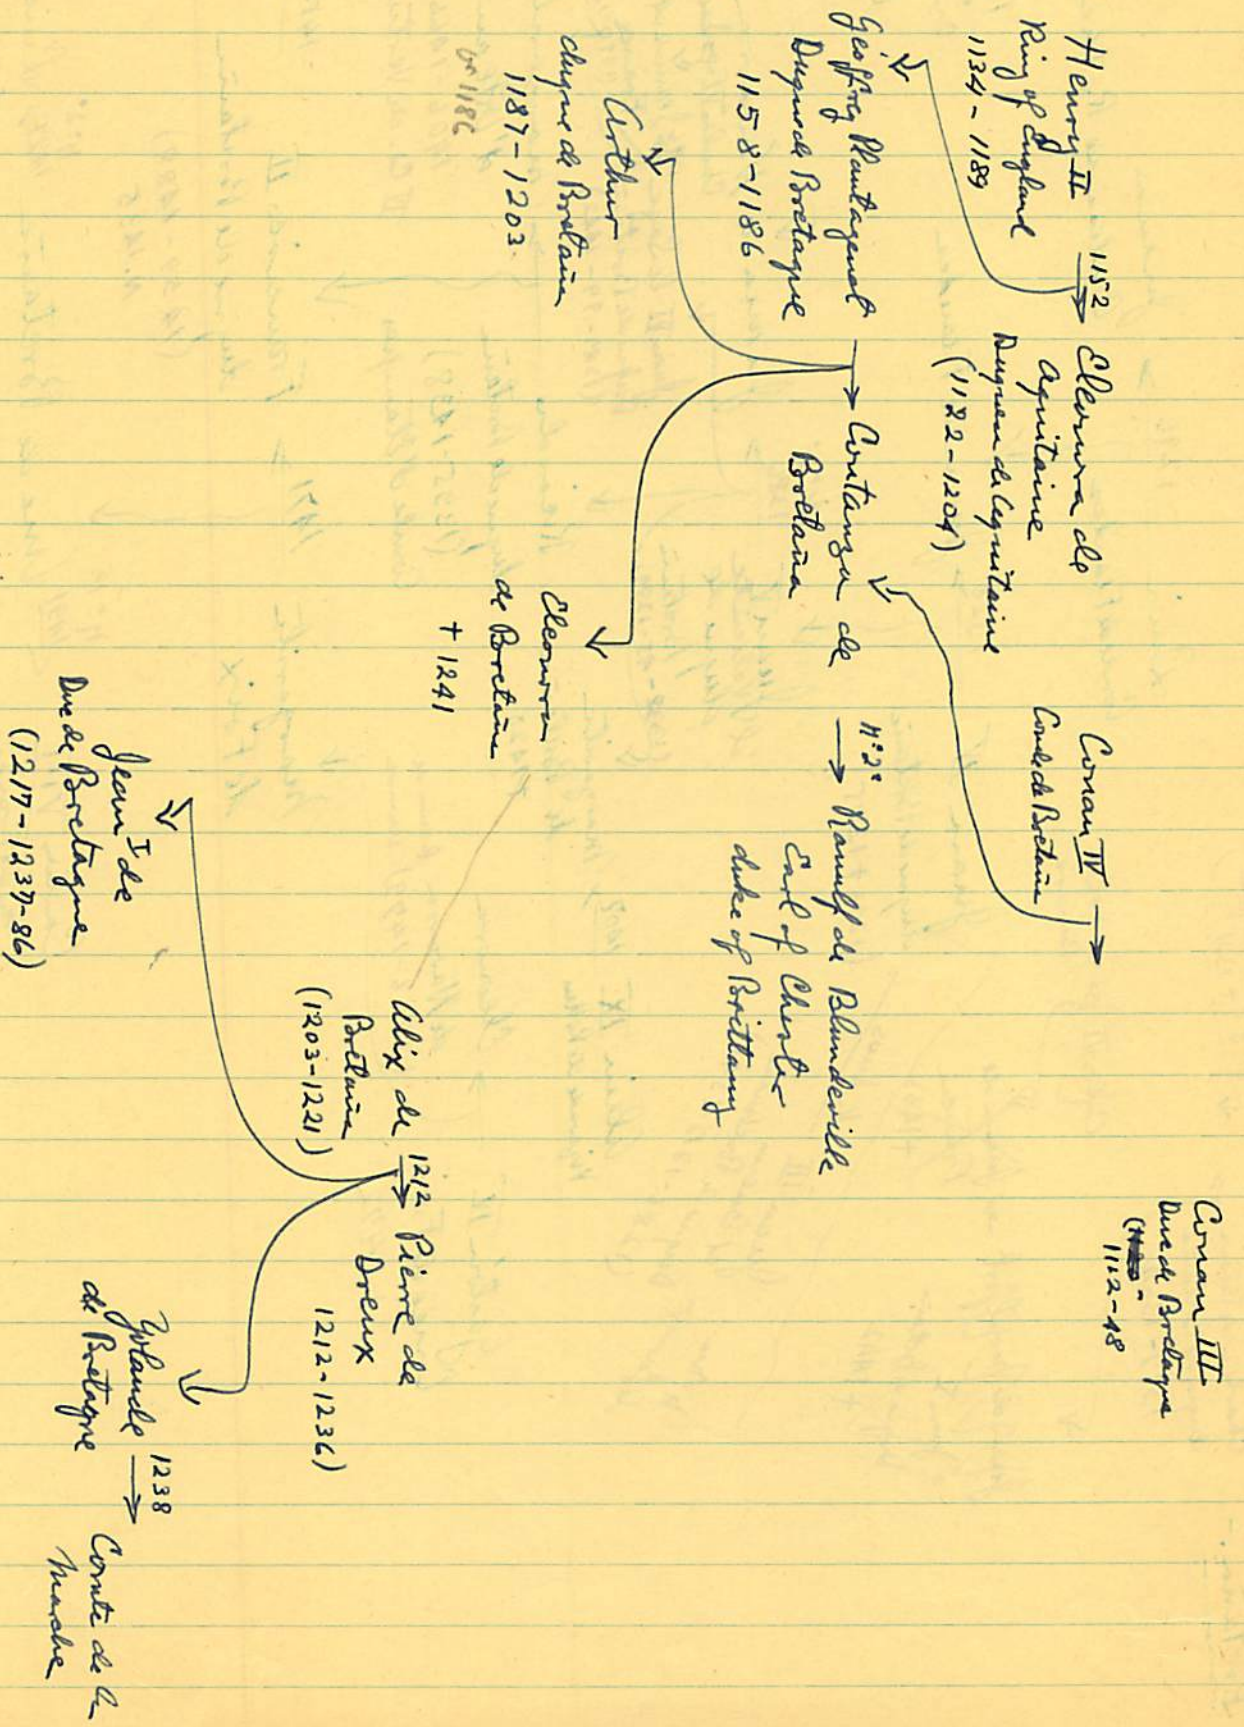 Conan III
Duc de Bretagne
1112-48
Henry II
King of England
1134-1189
1152
Eleonora de
Aquitaine
Duquesa de Aquitaine
(1122-1204)
Conan IV
Conde de Bretaña
Geoffrey Plantagenet
Duque de Bretagne
1158-1186
Contanza de
Bretaña
nº 2º
Ranulf de Blundeville
Earl of Chester
duke of Brittany
Arthur
duque de Bretaña
1187-1203
or 1186
Eleonora
de Bretaña
+ 1241
Alix de
Bretaña
(1203-1221)
1212
Pierre de
Dreux
1212-1236)
Jean I de
Duc de Bretagne
(1217-1237-86)
Yolande
de Bretagne
1238
Comte de la
Marche